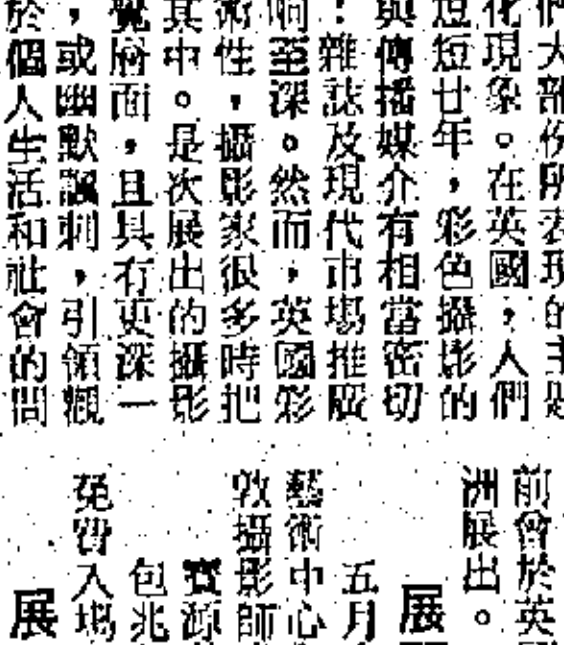 們大部份所表現的主題
化現象。在英國，人們
短短廿年，彩色攝影的
與傳播媒介有相當密切
：雜誌及現代市場推廣
响至深。然而，英國彩
術性，攝影家很多時把
其中。是次展出的攝影
覺層面，且具有更深一
，或幽默諷刺，引領觀
於個人生活和社會的問
前曾於英
洲展出。
展
五月
藝術中心
敦攝影師
寶源
包兆
免費入場
展